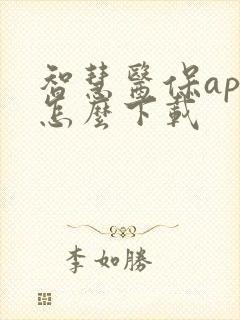 智慧醫保ap
怎麼下載
李如勝